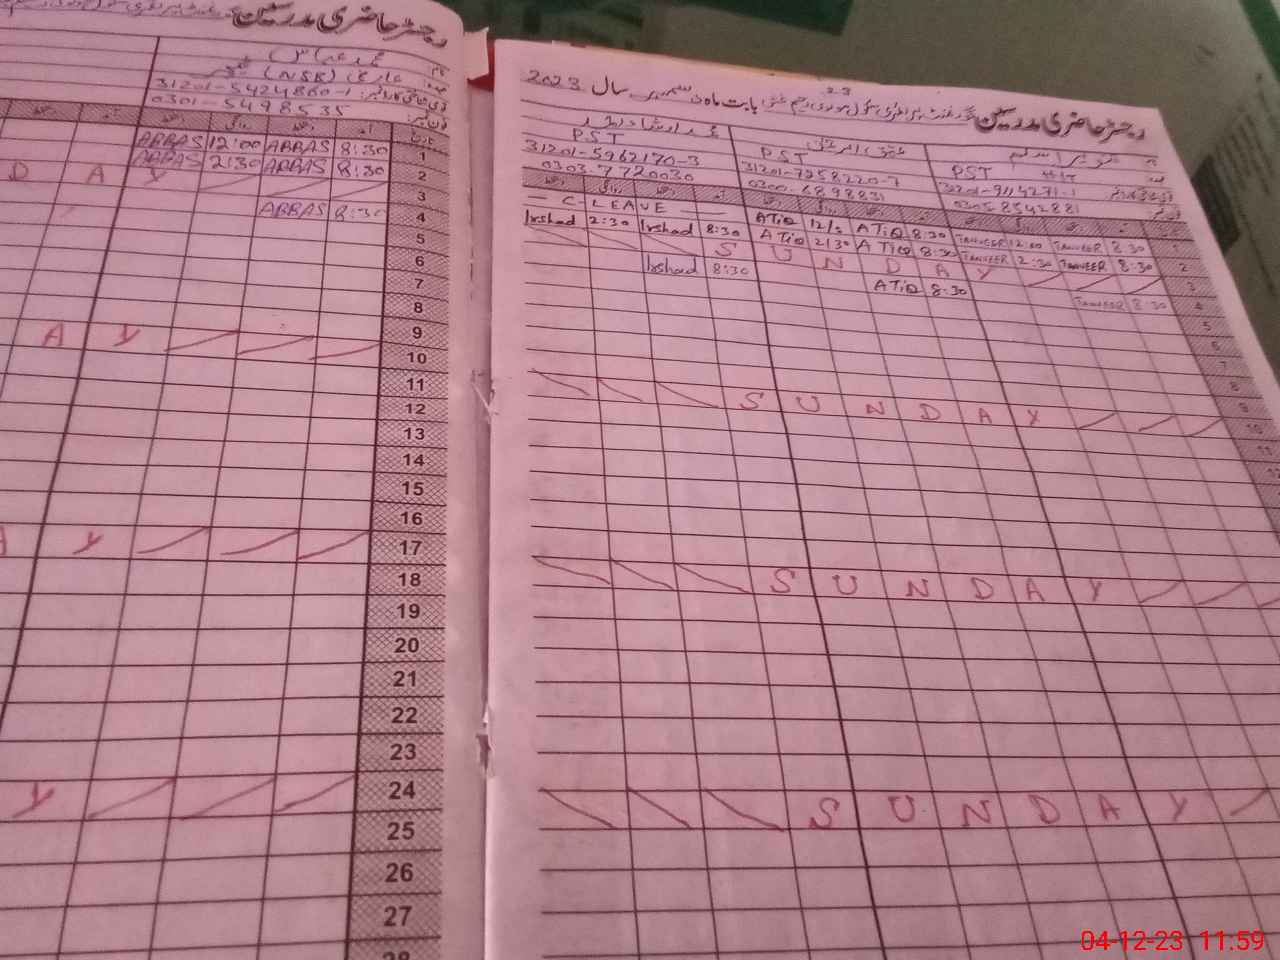 رجسٹر حاضری مدرسین
محمد عباس
نام
(NSB)
عہدہ
31201-5424860-1
0301-5498535
فون نمبر
تاریخ
ABBAS 12:00 ABBAS 8:30 1
ABBAS 2:30 ABBAS 8:30 2
D A Y 3
ABBAS 8:30 4
5
6
7
8
9
A Y 10
11
12
13
14
15
16
A Y 17
18
19
20
21
22
23
Y 24
25
26
27
28
رجسٹر حاضری مدرسین
بابت ماہ دسمبر سال 2023
PST PST PST
31201-5962170-3 31201-7258220-7 31201-9114271-1
0303-7720030 0300-6898831 0305 8542881
C-LEAVE ATiQ ATiQ 8:30 TANVEER 12:00 TANVEER 8:30 1
Irshad 2:30 Irshad 8:30 ATiQ 2/30 ATiQ 8:30 TANVEER 2:30 TANVEER 8:30 2
S U N D A Y 3
Irshad 8:30 ATiQ 8:30 TANVEER 8:30 4
5
6
7
8
9
S U N D A Y 10
11
S U N D A Y
S U N D A Y
04-12-23 11:59